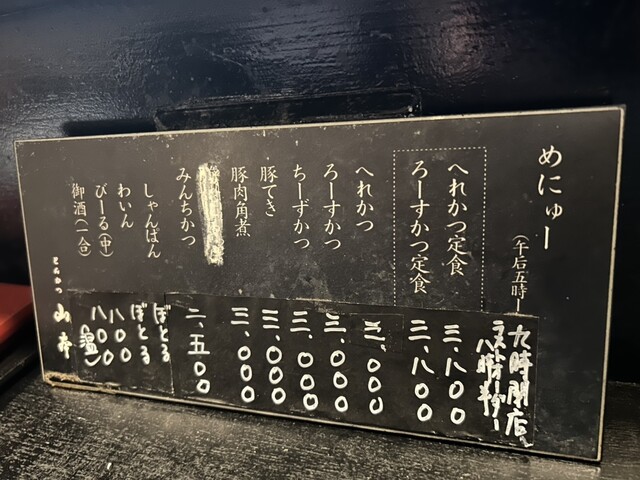 めにゅー
(午后五時ー
九時閉店
ラストオーダー
八時半
へれかつ定食 三、八〇〇
ろーすかつ定食 三、八〇〇
へれかつ 三、〇〇〇
ろーすかつ 三、〇〇〇
ちーずかつ 三、〇〇〇
豚てき 三、〇〇〇
豚肉角煮 三、〇〇〇
みんちかつ 二、五〇〇
しゃんぱん ぼとる
わいん ぼとる
びーる(中) 八〇〇
御酒(一合) 八〇〇
(温)
とんかつ